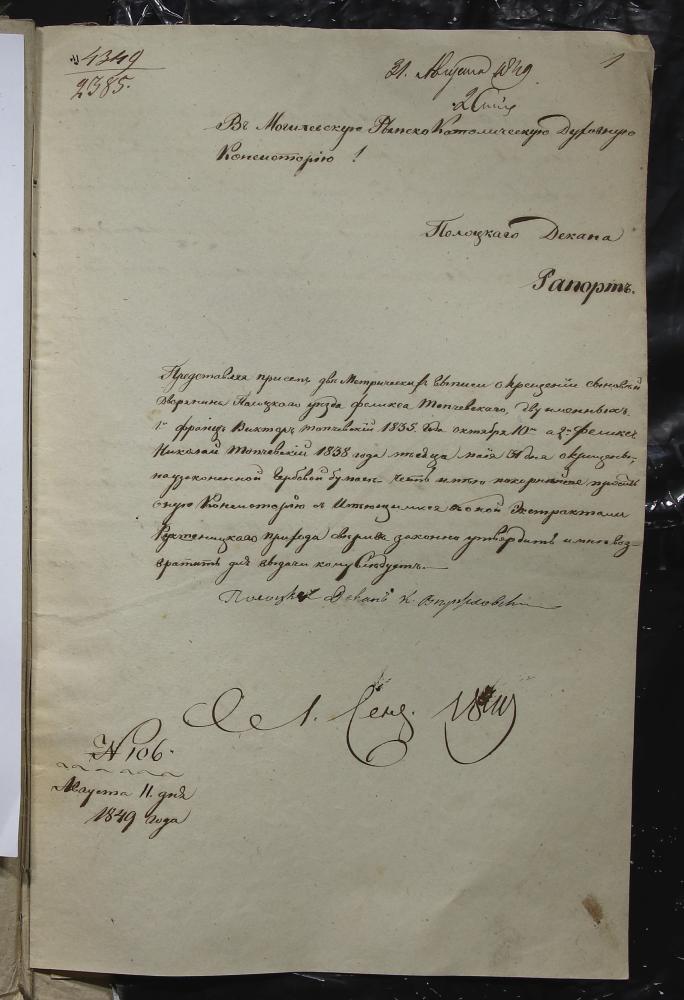 4349
2385.
31. Августа 1849
1
Въ Могилевскую Римско Католическую Духовную
Консисторію !
Полоцкаго Декана
Рапортъ.
Представляя присемъ двѣ Метрическія выписи о крещеніи сыновей
Дворянина Полоцкаго уѣзда Феликса Топчевскаго, двуименныхъ
1го Францъ Викторъ Топчевскій 1835. года октября 10го а 2го Феликсъ
Николай Топчевскій 1838 года мая 31 дня
Гербовой бумагѣ честь имѣю покорнѣйше просить
оную Консисторію Экстрактами
прихода законно утвердить и мнѣ воз-
вратить для выдачи кому слѣдуетъ.
Полоцкій Деканъ К.
1. Сент. 1849
N 106.
Августа 11. дня
1849 года